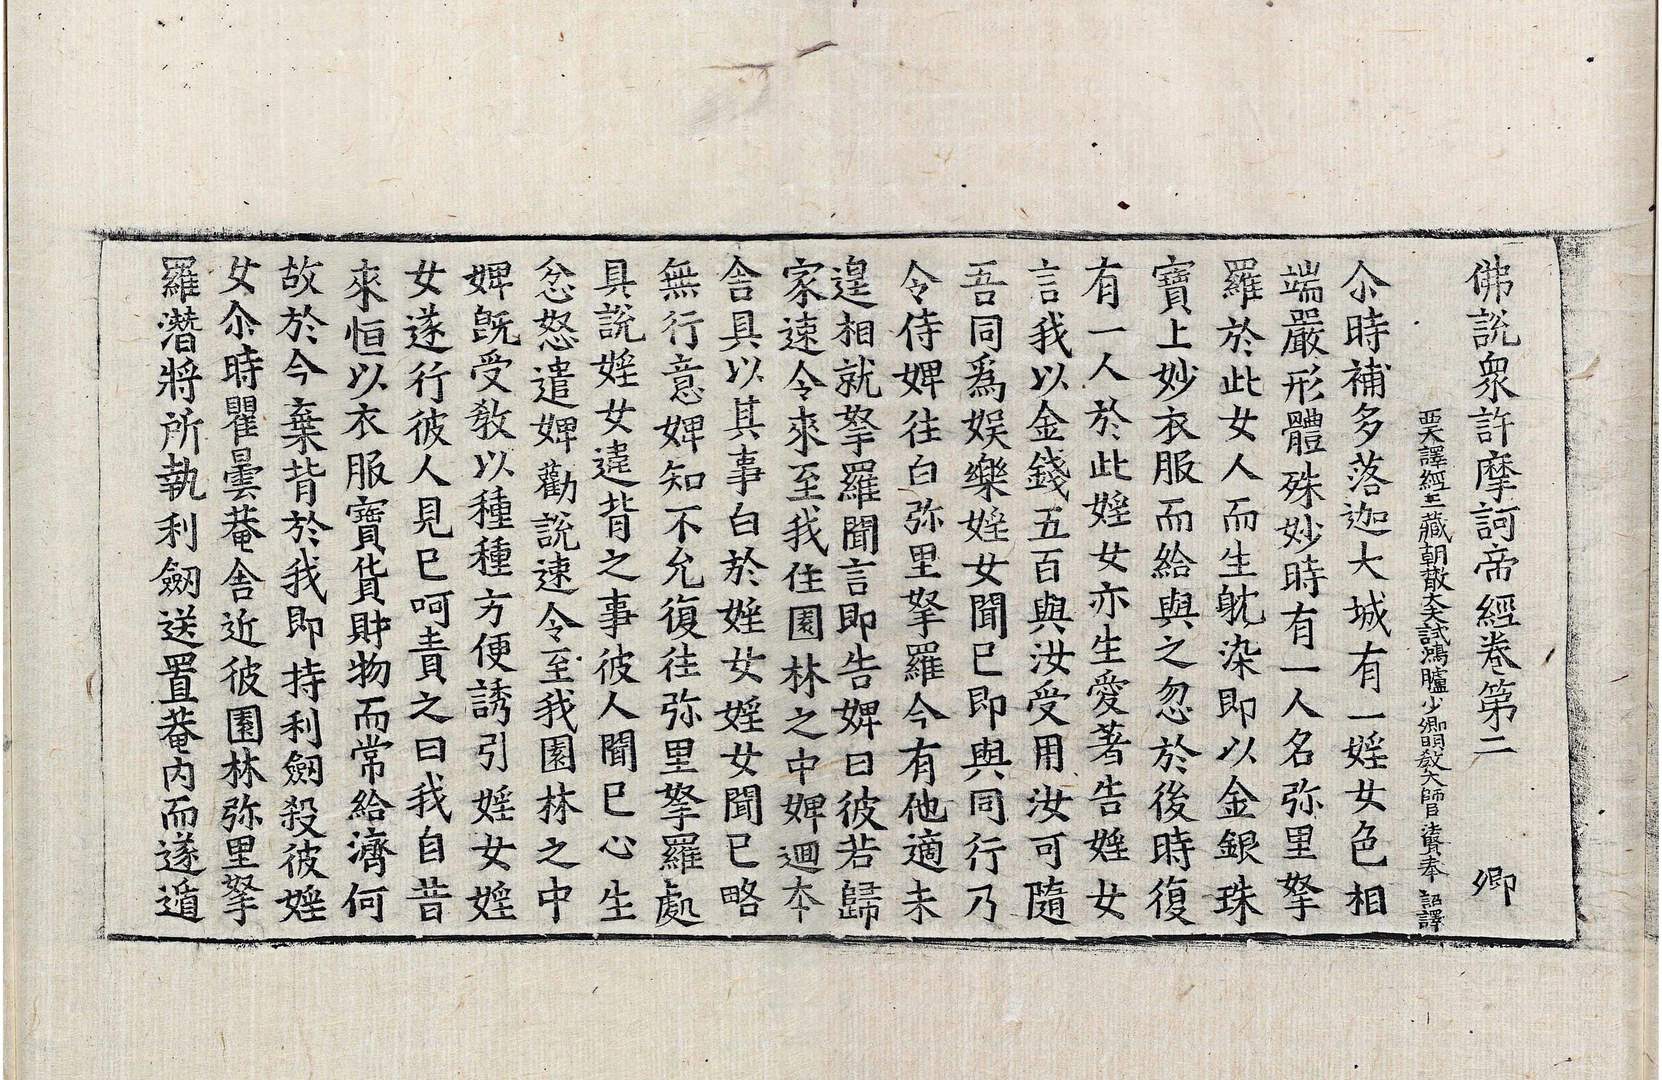 佛說衆許摩訶帝經卷第二 卿
西天譯經三藏朝散大夫試鴻臚少卿明教大師臣法賢奉 詔譯
尒時補多落迦大城有一婬女色相
端嚴形體殊妙時有一人名弥里拏
羅於此女人而生躭染即以金銀珠
寶上妙衣服而給與之忽於後時復
有一人於此婬女亦生愛著告婬女
言我以金錢五百與汝受用汝可隨
吾同爲娛樂婬女聞已即與同行乃
令侍婢往白弥里拏羅今有他適未
遑相就拏羅聞言即告婢曰彼若歸
家速令來至我住園林之中婢迴本
舍具以其事白於婬女婬女聞已略
無行意婢知不允復往弥里拏羅處
具說婬女違背之事彼人聞已心生
忿怒遣婢勸說速令至我園林之中
婢旣受教以種種方便誘引婬女婬
女遂行彼人見已呵責之曰我自昔
來恒以衣服寶貨財物而常給濟何
故於今棄背於我即持利劒殺彼婬
女尒時瞿曇菴舍近彼園林弥里拏
羅潛將所執利劒送置菴内而遂遁